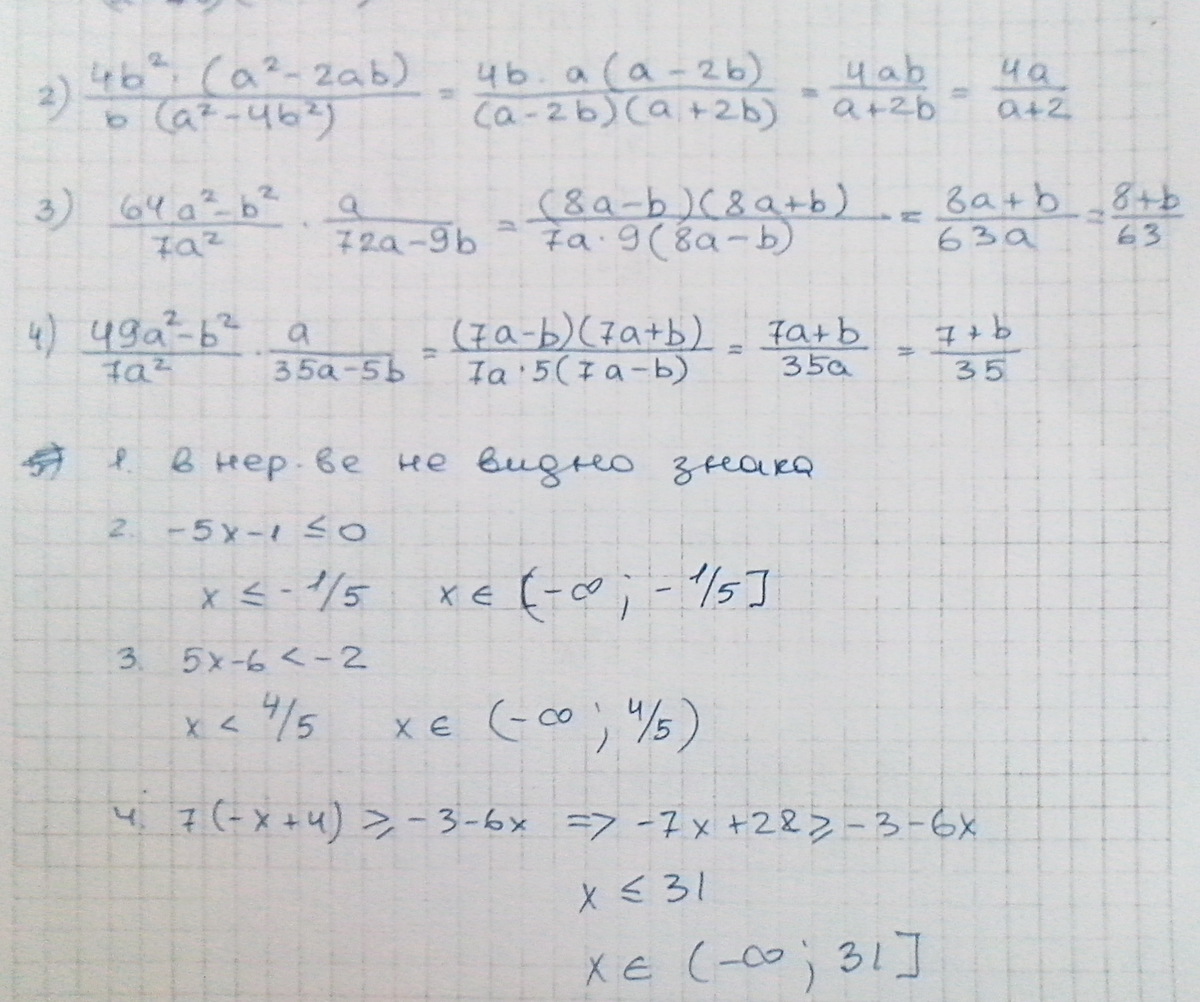 2) 4b²·(a²-2ab)/b(a²-4b²) = 4b·a(a-2b)/(a-2b)(a+2b) = 4ab/a+2b = 4a/a+2
3) 64a²-b²/7a² · a/72a-9b = (8a-b)(8a+b)/7a·9(8a-b) = 8a+b/63a = 8+b/63
4) 49a²-b²/7a² · a/35a-5b = (7a-b)(7a+b)/7a·5(7a-b) = 7a+b/35a = 7+b/35
1. в нер-ве не видно знака
2. -5x-1 ≤ 0
x ≤ -1/5 x ∈ (-∞; -1/5]
3. 5x-6 < -2
x < 4/5 x ∈ (-∞; 4/5)
4. 7(-x+4) ≥ -3-6x => -7x+28 ≥ -3-6x
x ≤ 31
x ∈ (-∞; 31]